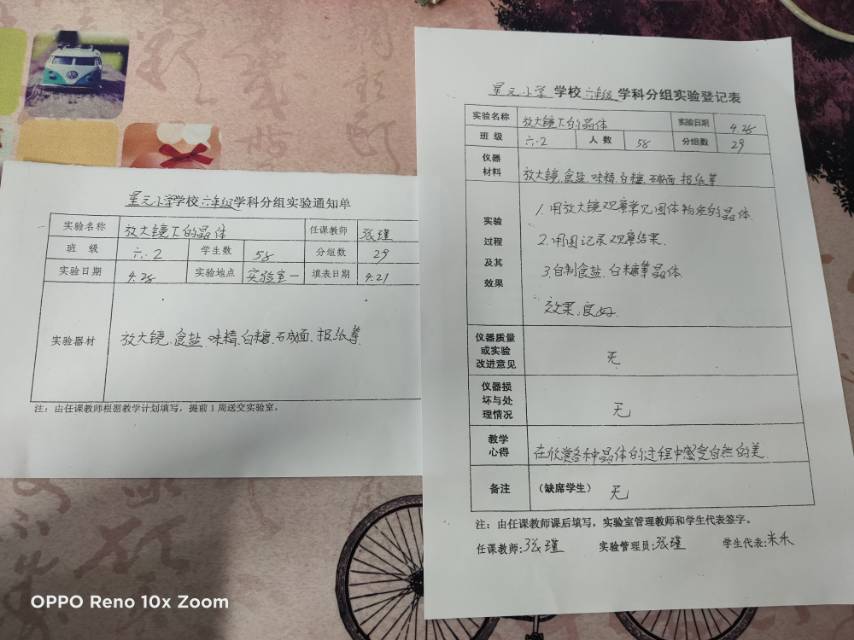 星元小学学校六年级学科分组实验通知单
实验名称 放大镜下的晶体 任课教师 张瑾
班 级 六.2 学生数 58 分组数 29
实验日期 4.28 实验地点 实验室一 填表日期 4.21
实验器材 放大镜.食盐.味精.白糖.碱面.报纸等
注：由任课教师根据教学计划填写，提前1周送交实验室。
星元小学 学校 六年级 学科分组实验登记表
实验名称 放大镜下的晶体 实验日期 4.28
班 级 六.2 人 数 58 分组数 29
仪器材料 放大镜.食盐.味精.白糖.碱面.报纸等
实验过程及其效果
1.用放大镜观察常见固体物质的晶体
2.用图记录观察结果.
3.自制食盐.白糖等晶体.
效果:良好.
仪器质量或实验改进意见 无
仪器损坏与处理情况 无
教学心得 在欣赏各种晶体的过程中感受自然的美.
备注 （缺席学生） 无
注：由任课教师课后填写，实验室管理教师和学生代表签字。
任课教师:张瑾 实验管理员:张瑾 学生代表:朱禾
OPPO Reno 10x Zoom